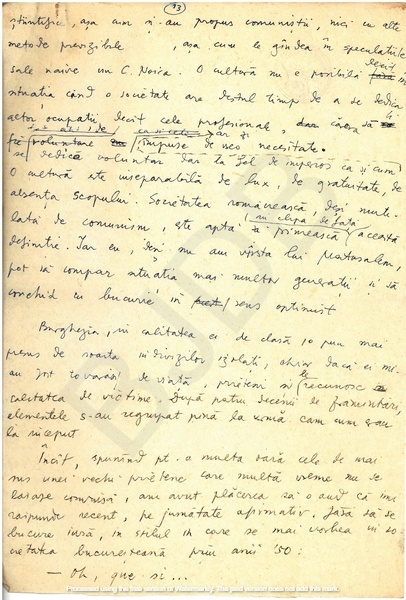 93
științifice, așa cum și-au propus comuniștii, nici cu alte
metode previzibile , așa cum le gîndea în speculațiile
sale naive un C. Noica. O cultură nu e posibilă decît în
situația cînd o societate are destul timp de a se dedica
altor ocupații decît cele profesionale, cărora să li
se dedice voluntar dar la fel de imperios ca și cum
ar fi impuse de vreo necesitate.
O cultură este inseparabilă de lux, de gratuitate, de
absența scopului. Societatea românească, deși muti-
lată de comunism, este aptă în clipa de față să primească această
definiție. Iar eu, deși nu am vîrsta lui Matusalem,
pot să compar situația mai multor generații și să
conchid cu bucurie în sens optimist
Burghezia, în calitatea ei de clasă, o pun mai
presus de soarta indivizilor izolați, chiar dacă ei mi-
au fost tovarăși de viață, prieteni și le recunosc
calitatea de victime. După patru decenii de frămîntări,
elementele s-au regrupat pînă la urmă cam cum erau
la început
Încît, spunînd pt. a multa oară cele de mai
sus unei vechi prietene care multă vreme nu se
lăsase convinsă, am avut plăcerea să o aud că îmi
răspunde recent, pe jumătate afirmativ, fără să se
bucure însă, în stilul în care se mai vorbea în so-
cietatea bucureșteană prin anii '50:
— Oh, que si...